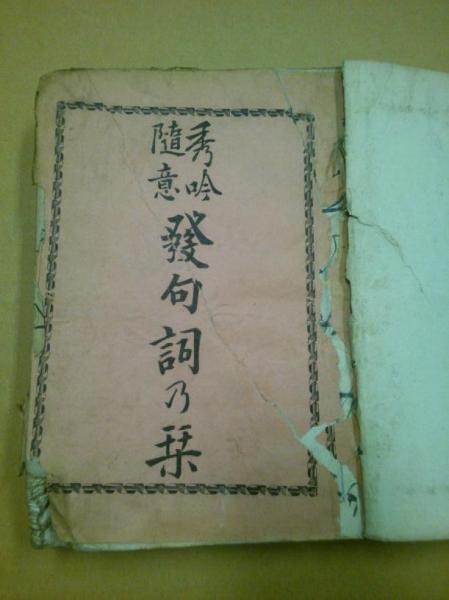 秀吟
隨意
發句詞乃栞